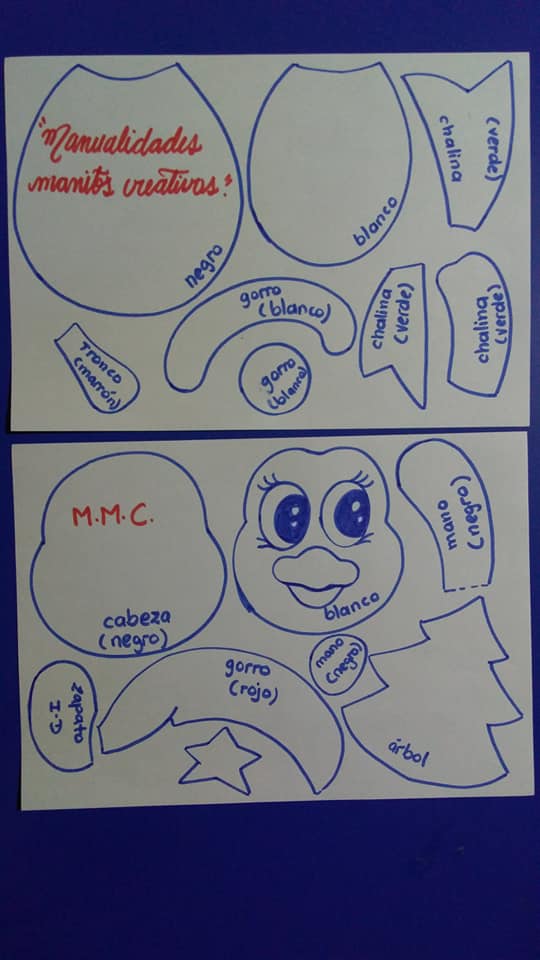 "Manualidades
manitos creativas"
negro
blanco
chalina
(verde)
gorro
(blanco)
chalina
(verde)
chalina
(verde)
Tronco
(marrón)
gorro
(blanco)
M.M.C.
cabeza
(negro)
blanco
mano
(negro)
mano
(negro)
gorro
(rojo)
zapato
I-D
árbol